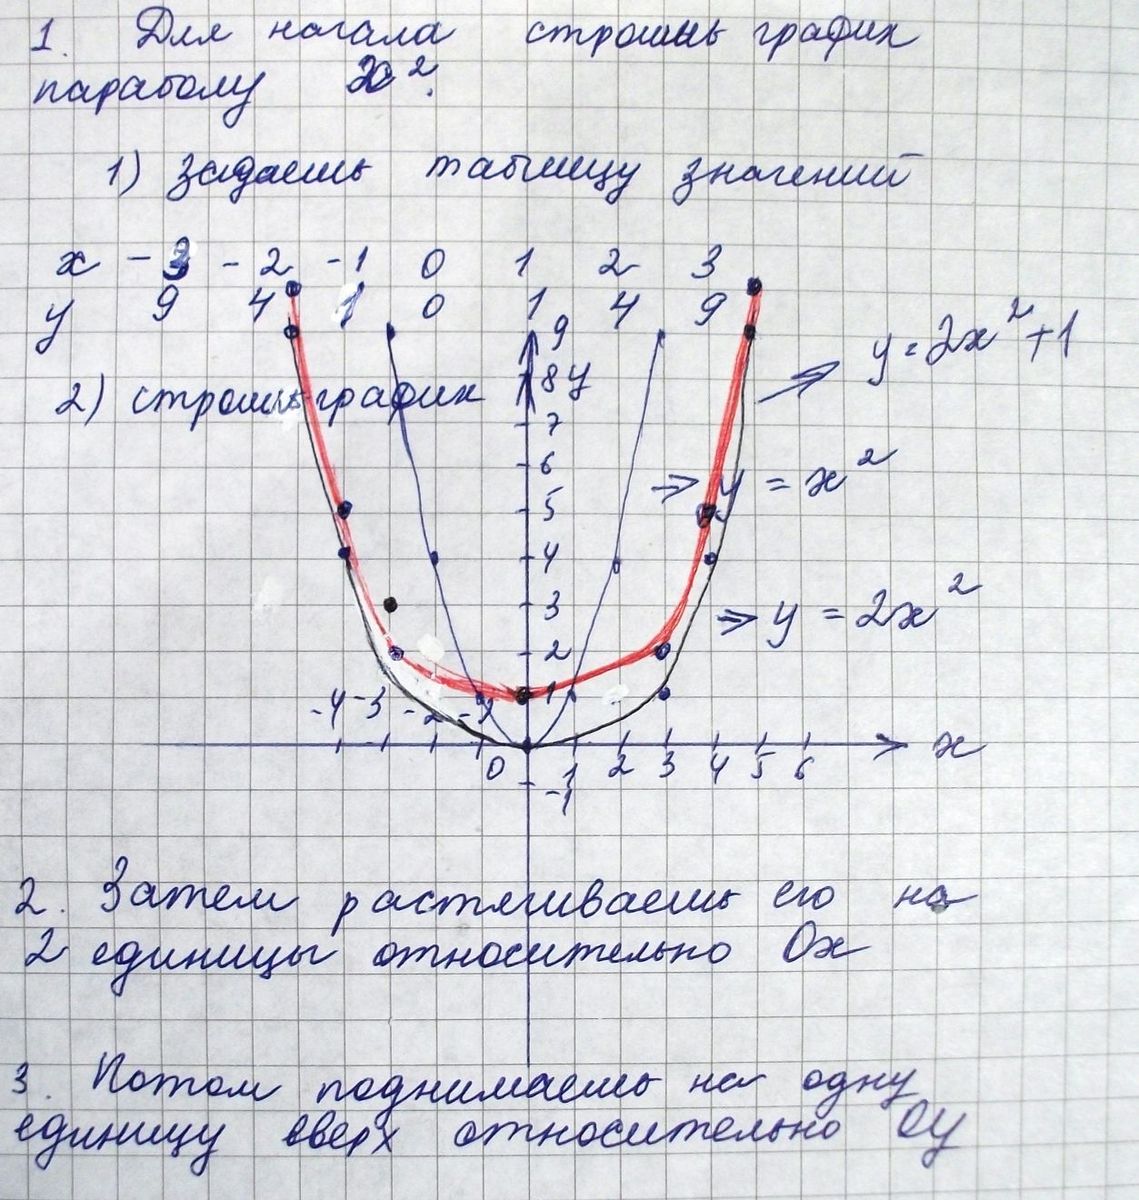 1. Для начала строишь график
параболу x².
1) задаешь таблицу значений
x -3 -2 -1 0 1 2 3
y 9 4 1 0 1 4 9
2) строишь график
9
8 y
7
6
5
4
3
2
1
y = 2x² + 1
⇒ y = x²
⇒ y = 2x²
-4 -3 -2 -1
0 1 2 3 4 5 6 x
-1
2. Затем растягиваешь его на
2 единицы относительно Ox
3. Потом поднимаешь на одну
единицу вверх относительно Oy